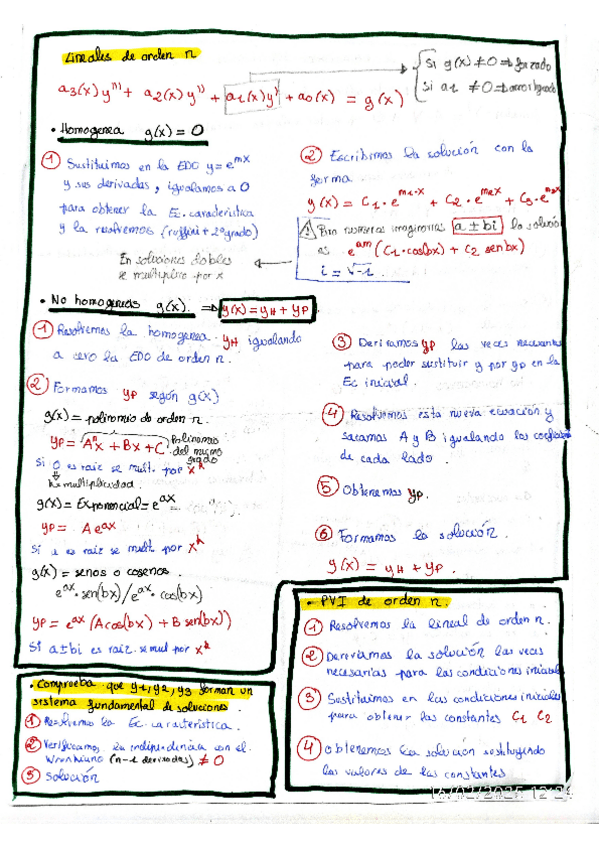 Lineales de orden n
a3(x) y''' + a2(x) y'' + a1(x) y' + a0(x) = g(x)
Si g(x) ≠ 0 ⇒ forzado
Si a1 ≠ 0 ⇒
• Homogenea g(x) = 0
① Sustituimos en la EDO y = e^mx
y sus derivadas, igualamos a 0
para obtener la Ec. característica
y la resolvemos (ruffini + 2º grado)
En soluciones dobles
se multiplica por x
② Escribimos la solución con la
forma
y(x) = C1 · e^m1·x + C2 · e^m2x + C3 · e^m3x
Para numeros imaginarios a ± bi la solución
es e^am (C1 · cos(bx) + C2 sen(bx)
i = √-1.
• No homogeneas g(x). ⇒ y(x) = yH + yP.
① Resolvemos la homogenea yH igualando
a cero la EDO de orden n.
② Formamos yP según g(x)
g(x) = polinomio de orden n.
yP = A^n x + Bx + C Polinomio
del mismo
grado
Si 0 es raiz se mult. por x^k
k = multiplicidad.
g(x) = Exponencial = e^ax
yP = A e^ax
Si a es raiz se mult. por x^k
g(x) = senos o cosenos.
e^ax · sen(bx) / e^ax · cos(bx)
yP = e^ax (A cos(bx) + B sen(bx))
Si a ± bi es raiz. se mul por x^k
③ Derivamos yP las veces necesarias
para poder sustituir y por yp en la
Ec inicial.
④ Resolvemos esta nueva ecuación y
sacamos A y B igualando los coeficientes
de cada lado.
⑤ Obtenemos yP.
⑥ Formamos la solución.
y(x) = yH + yP.
• PVI de orden n.
① Resolvemos la lineal de orden n.
② Derivamos la solución las veces
necesarias para las condiciones iniciales
③ Sustituimos en las condiciones iniciales
para obtener las constantes C1 C2
④ Obtenemos la solución sustituyendo
los valores de las constantes
• Comprueba que y1, y2, y3 forman un
sistema fundamental de soluciones.
① Resolvemos la Ec. característica.
② Verificamos la independencia con el
Wronkiano (n-1 derivadas) ≠ 0
③ Solución
16/02/2025 12:2